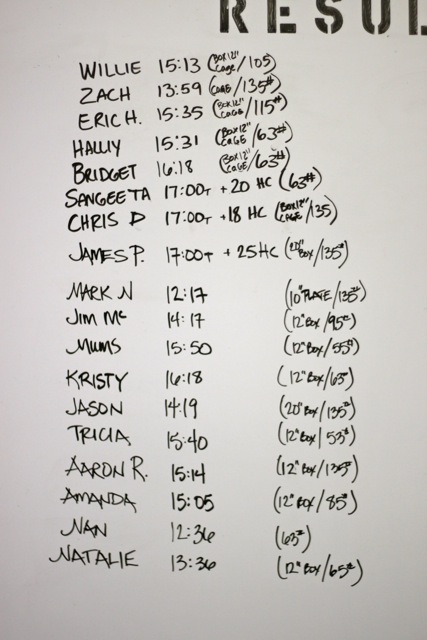 RESUL
WILLIE 15:13 (BOX 12" CAGE/105)
ZACH 13:59 (CAGE/135#)
ERIC H. 15:35 (BOX 12" CAGE/115#)
HALLIY 15:31 (BOX 12" CAGE/63#)
BRIDGET 16:18 (BOX 12" CAGE/63#)
SANGEETA 17:00T + 20 HC (63#)
CHRIS D 17:00T + 18 HC (BOX 12" CAGE/135)
JAMES P. 17:00T + 25 HC (20" BOX/135#)
MARK N 12:17 (10" PLATE/135#)
JIM Mc 14:17 (12" BOX/95#)
MUMS 15:50 (12" BOX/55#)
KRISTY 16:18 (12" BOX/65)
JASON 14:19 (20" BOX/135#)
TRICIA 15:40 (12" BOX/53#)
AARON R. 15:14 (12" BOX/135#)
AMANDA 15:05 (12" BOX/85#)
NAN 12:36 (63#)
NATALIE 13:36 (12" BOX/65#)